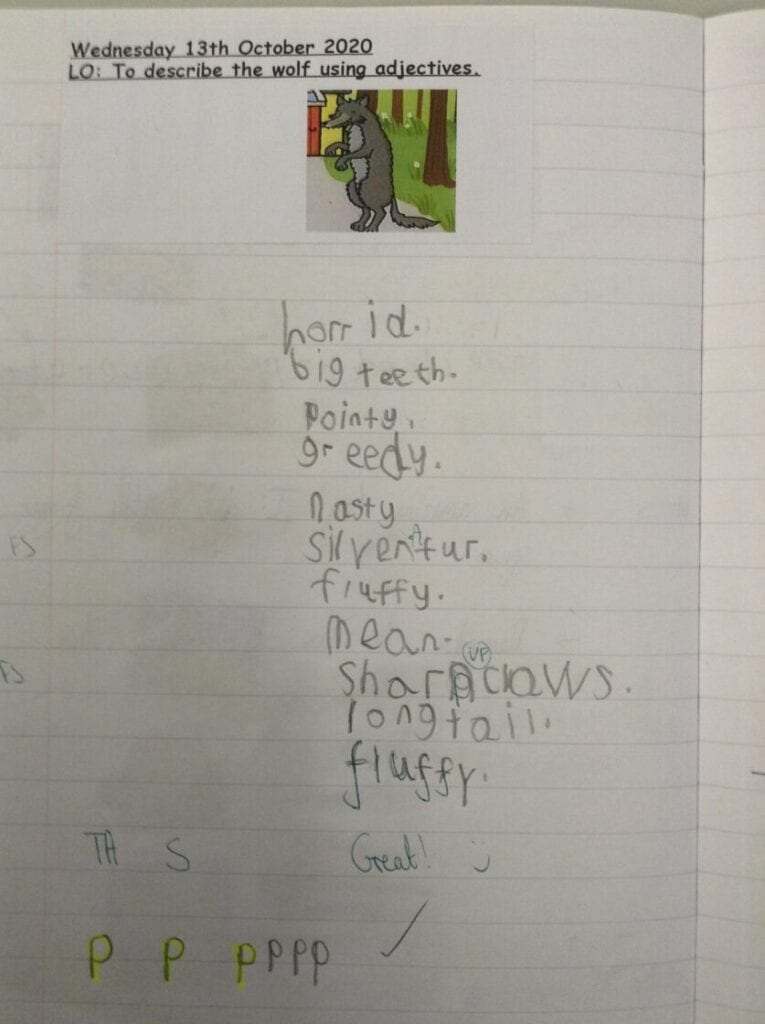 Wednesday 13th October 2020
LO: To describe the wolf using adjectives.
horrid.
big teeth.
pointy.
greedy.
nasty
FS silver fur.
fluffy.
mean.
VP
FS sharp claws.
long tail.
fluffy.
TA S Great!
p p p p p p